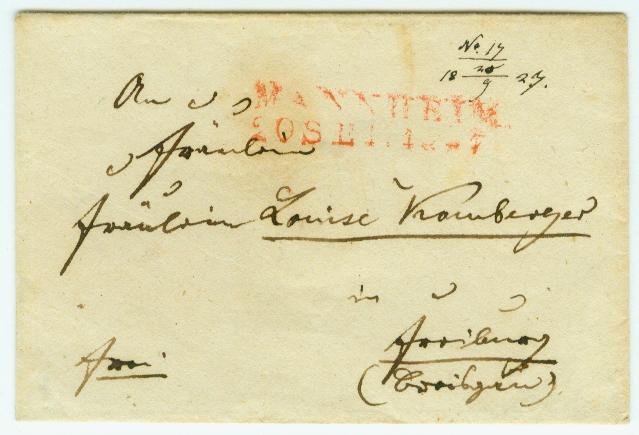 No. 17
20
18 — 27.
9
MANNHEIM
20 SEP. 1827
An
Fräulein
Fräulein Louise Kamberger
in
Freiburg
(Breisgau)
frei